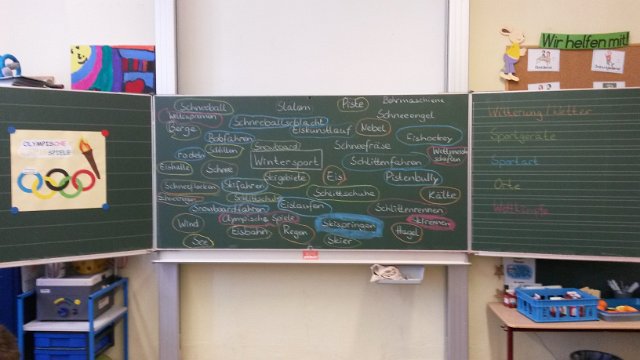 OLYMPISCHE
SPIELE
Schneeball Slalom Piste Bohrmaschiene
Weitspringen Schneeengel
Berge Schneeballschlacht Nebel
Bobfahren Eiskunstlauf Eishockey
Snowboard Schneefräse
Rodeln Schlitten Wintersport Schlittenfahren
Eishalle Schnee Skigebiete Eis Pistenbully
Schneeflocken Skifahren Schlittschuhe Kälte
Snowboardfahren Eislaufen Schlittenrennen
Olympische Spiele Skirennen
Wind Eisbahn Regen Skispringen Hagel
See Skier
Wir helfen mit!
Witterung/Wetter
Sportgeräte
Sportart
Orte
Wettkämpfe